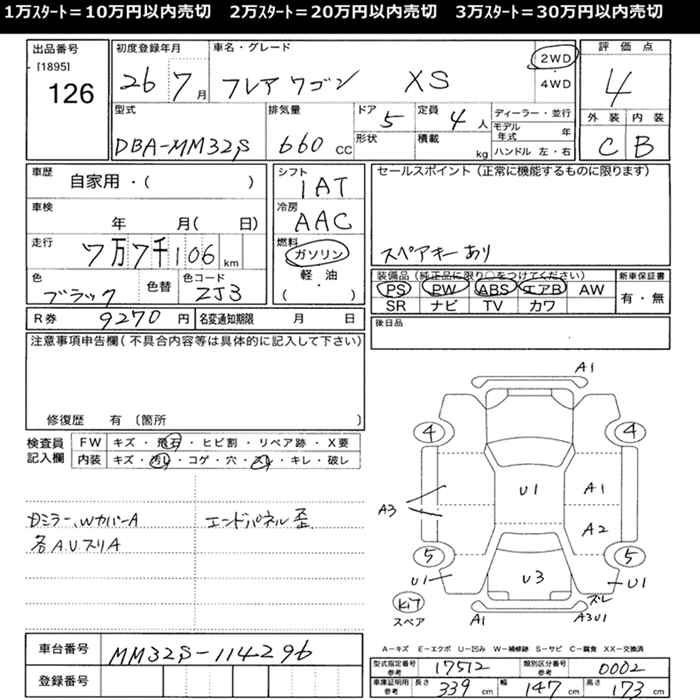 1万スタート=10万円以内売切 2万スタート=20万円以内売切 3万スタート=30万円以内売切
出品番号
[1895]
126
初度登録年月
26 7月
車名・グレード
フレア ワゴン XS
2WD
4WD
評価点
4
外装 内装
C B
型式
DBA-MM32S
排気量
660 CC
ドア
5
形状
定員
4 人
積載
kg
ディーラー・並行
モデル年式 年
ハンドル 左・右
車歴
自家用・( )
車検
年 月( 日)
走行
7万7千106 km
色
ブラック
色替
色コード
ZJ3
シフト
IAT
冷房
AAC
燃料
ガソリン
軽・油
( )
セールスポイント(正常に機能するものに限ります)
スペアキーあり
装備品(純正品に限り○をつけてください)
PS PW ABS エアB AW
SR ナビ TV カワ
新車保証書
有・無
R券 9270 円 名変通知期限 月 日
後日品
注意事項申告欄(不具合内容等は具体的に記入して下さい)
修復歴 有 〔箇所 〕
検査員記入欄
FW キズ・飛石・ヒビ割・リペア跡・X要
内装 キズ・汚れ・コゲ・穴・スレ・キレ・破レ
Dミラー、WカバーA
各A.UスリA
エンドパネル歪
A1
4 4
U1 A1
A3
A2
5 5
U1 U3 U1
ズレ
キ17
スペア
A1 A3U1
A-キズ E-エクボ U-凹み W-補修跡 S-サビ C-腐食 XX-交換済
車台番号 MM32S-114296
登録番号
型式指定番号 参考 17512 類別区分番号 参考 0002
車庫証明用 参考 長さ 339 cm 幅 147 cm 高さ 173 cm